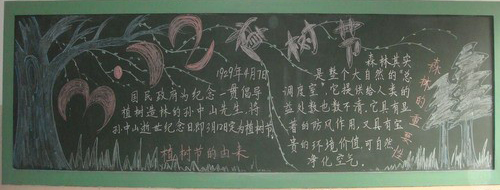 植树节
1929年4月7
国民政府为纪念一贯倡导
植树造林的孙中山先生,将
孙中山逝世纪念日即3月12日定为植树节
植树节的由来
森林其实
是整个大自然的“总
调度室”。它提供给人类的
益处数也数不清,它具有显
著的防风作用,又具有宝
贵的环境价值可自然
净化空气。
森林的重要性